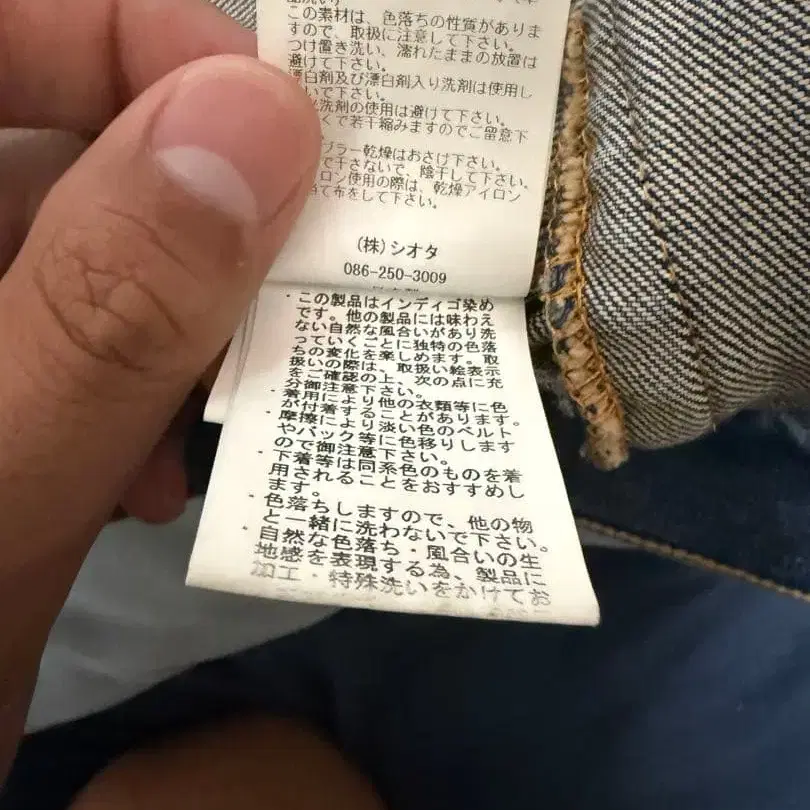 この素材は、色落ちの性質がありま
すので、取扱に注意して下さい。
つけ置き洗い、濡れたままの放置は
避けて下さい。
漂白剤及び漂白剤入り洗剤は使用し
いで下さい。
洗剤の使用は避けて下さい。
くで若干縮みますのでご留意下
ブラー乾燥はおさけ下さい。
で干さないで、陰干して下さい。
ロン使用の際は、乾燥アイロン
て布をして下さい。
(株)シオタ
086-250-3009
・この製品はインディゴ染め
です。他の製品には味わえ
ない自然な風合いがあり洗
っていくごとに独特の色落
ちの変化を楽しめます。取
扱いの際は、取扱い絵表示
をご確認の上、次の点に充
分御注意下さい。
・着用により他の衣類等に色
が付着することがあります。
・摩擦により淡い色のベルト
やバック等に色移りします
ので御注意下さい。
・下着等は同系色のものを着
用されることをおすすめし
ます。
・色落ちしますので、他の物
と一緒に洗わないで下さい。
・自然な色落ち・風合いの生
地感を表現する為、製品に
加工・特殊洗いをかけてお